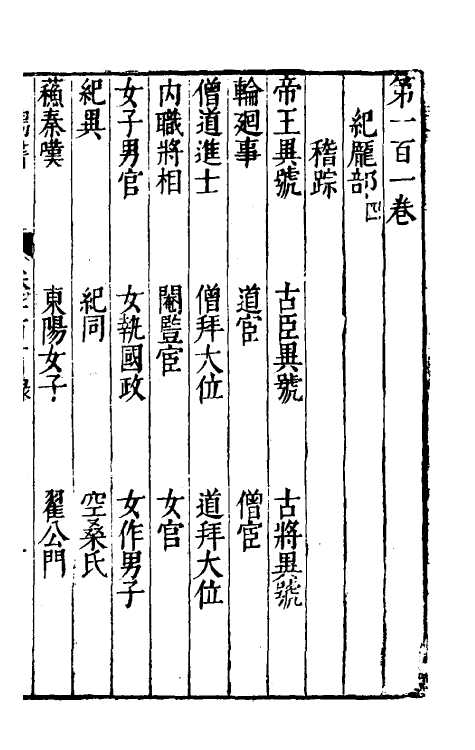 第一百一卷
紀龎部四
稽踪
帝王異號 古臣異號 古將異號
輪廻事 道宦 僧宦
僧道進士 僧拜大位 道拜大位
内職將相 閹豎宦 女官
女子男官 女執國政 女作男子
紀異 紀同 空桑氏
蘓秦嘆 東陽女子 翟公門